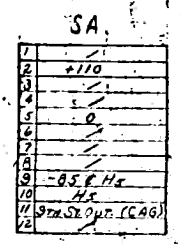 SA
1 /
2 +110
3 /
4 /
5 0
6 /
7 /
8 /
9 -85 ¢ Hs
10 Hs
11 Gra St Opt. (CAG)
12 /